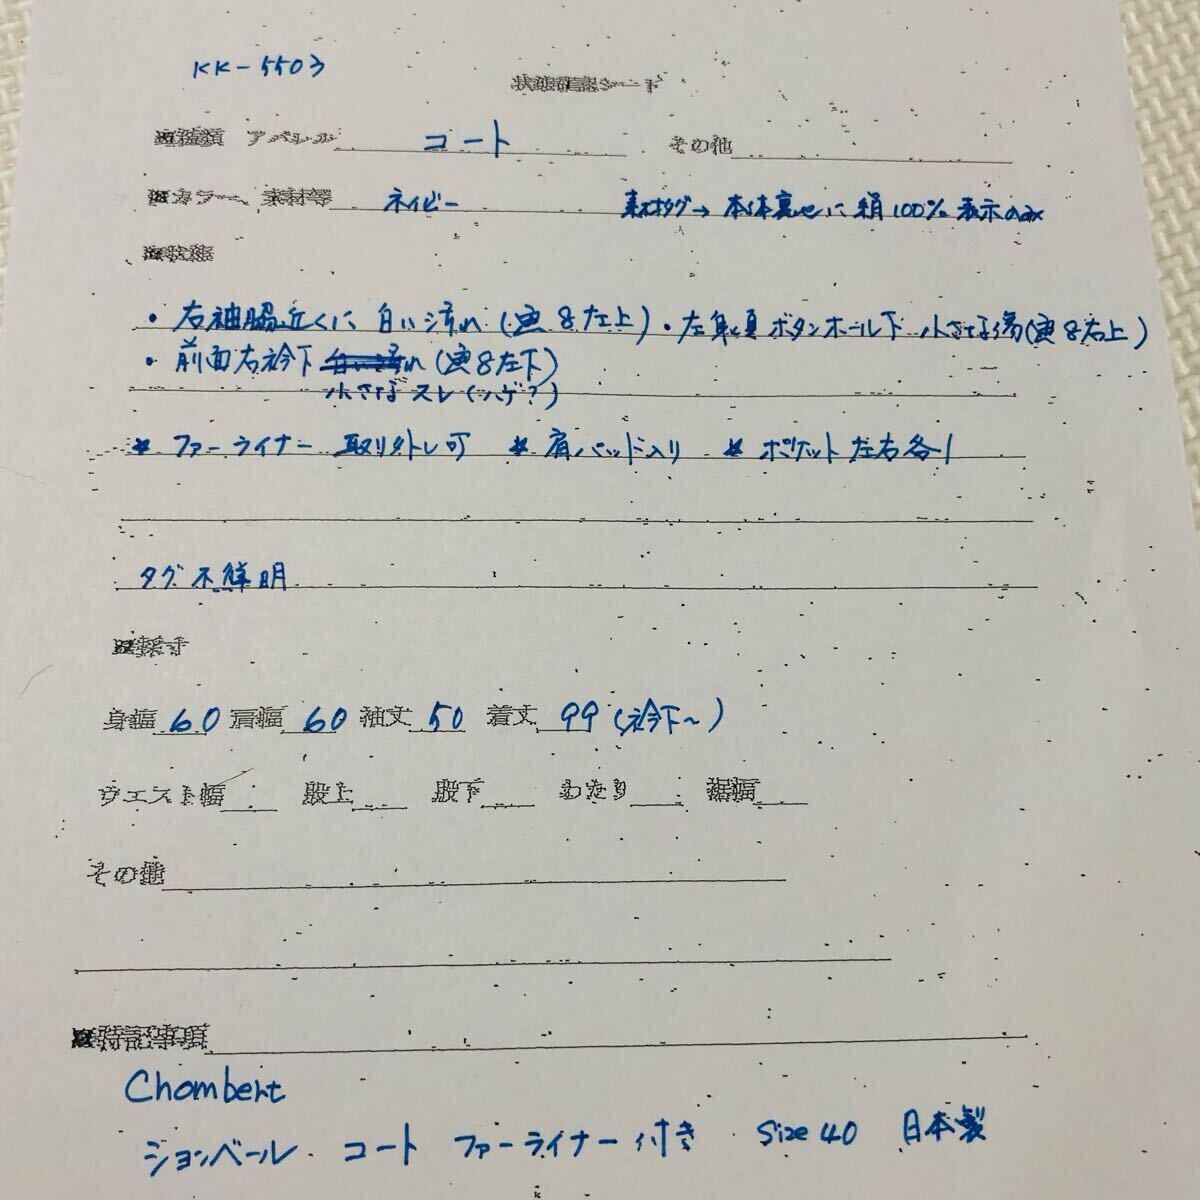 KK-5503
状態確認シート
※種類 アパレル コート その他
※カラー、素材等 ネイビー 素材タグ→本体裏地に絹100%表示のみ
※状態
・右袖脇近くに白い汚れ(画8左上)・左身頃ボタンホール下 小さな傷(画8右上)
・前面右衿下 (画8左下)
小さなスレ(ハゲ?)
* ファーライナー取り外し可 * 肩パッド入り * ポケット左右各1
タグ不鮮明
※採寸
身幅 60 肩幅 60 袖丈 50 着丈 99 (衿下~)
ウエスト幅 股上 股下 わたり 裾幅
その他
※特記事項
Chombert
ションベール. コート ファーライナー付き Size 40 日本製